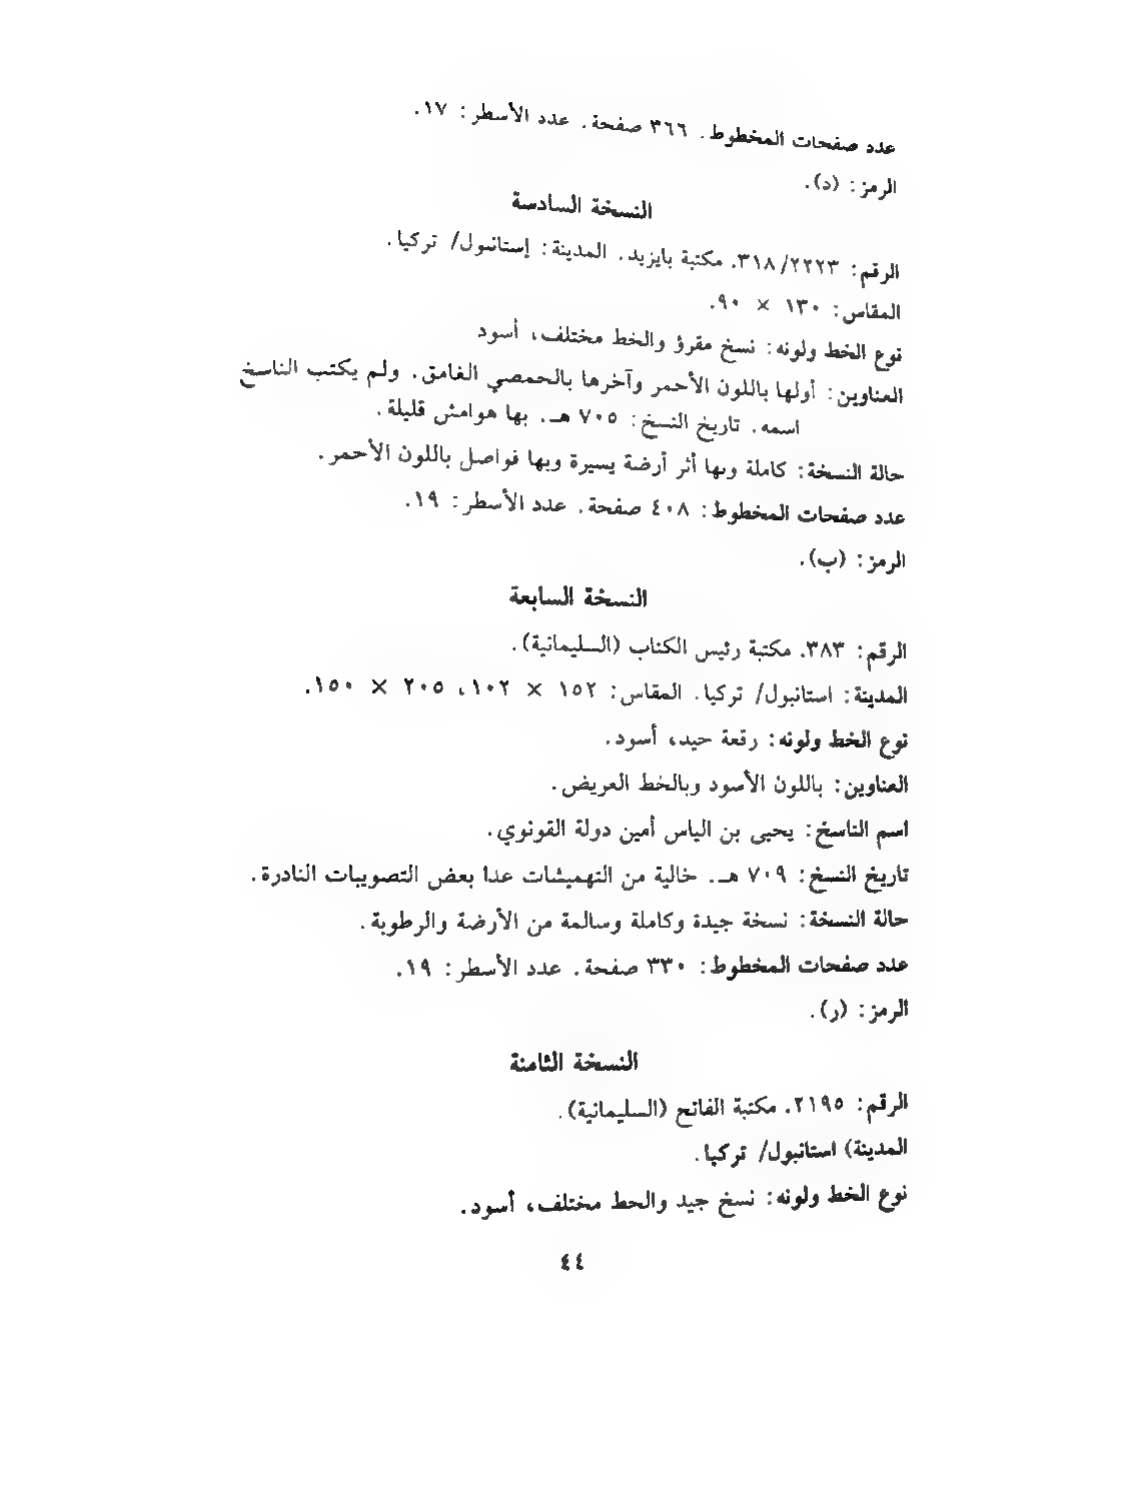 عدد صفحات المخطوط. ٣٦٦ صفحة. عدد الأسطر: ١٧.
الرمز: (د).
النسخة السادسة
الرقم: ٣١٨/٢٢٢٣. مكتبة بايزيد. المدينة: إستانبول/ تركيا.
المقاس: ١٣٠ × ٩٠.
نوع الخط ولونه: نسخ مقرؤ والخط مختلف، أسود
العناوين: أولها باللون الأحمر وآخرها بالحمصي الغامق. ولم يكتب الناسخ
اسمه. تاريخ النسخ: ٧٠٥ هـ. بها هوامش قليلة.
حالة النسخة: كاملة وبها أثر أرضة يسيرة وبها فواصل باللون الأحمر.
عدد صفحات المخطوط: ٤٠٨ صفحة. عدد الأسطر: ١٩.
الرمز: (ب).
النسخة السابعة
الرقم: ٣٨٣. مكتبة رئيس الكتاب (السليمانية).
المدينة: استانبول/ تركيا. المقاس: ١٥٢ × ١٠٢، ٢٠٥ × ١٥٠.
نوع الخط ولونه: رقعة جيد، أسود.
العناوين: باللون الأسود وبالخط العريض.
اسم الناسخ: يحيى بن الياس أمين دولة القونوي.
تاريخ النسخ: ٧٠٩ هـ. خالية من التهميشات عدا بعض التصويبات النادرة.
حالة النسخة: نسخة جيدة وكاملة وسالمة من الأرضة والرطوبة.
عدد صفحات المخطوط: ٣٣٠ صفحة. عدد الأسطر: ١٩.
الرمز: (ر).
النسخة الثامنة
الرقم: ٢١٩٥. مكتبة الفاتح (السليمانية).
المدينة) استانبول/ تركيا.
نوع الخط ولونه: نسخ جيد والخط مختلف، أسود.
٤٤